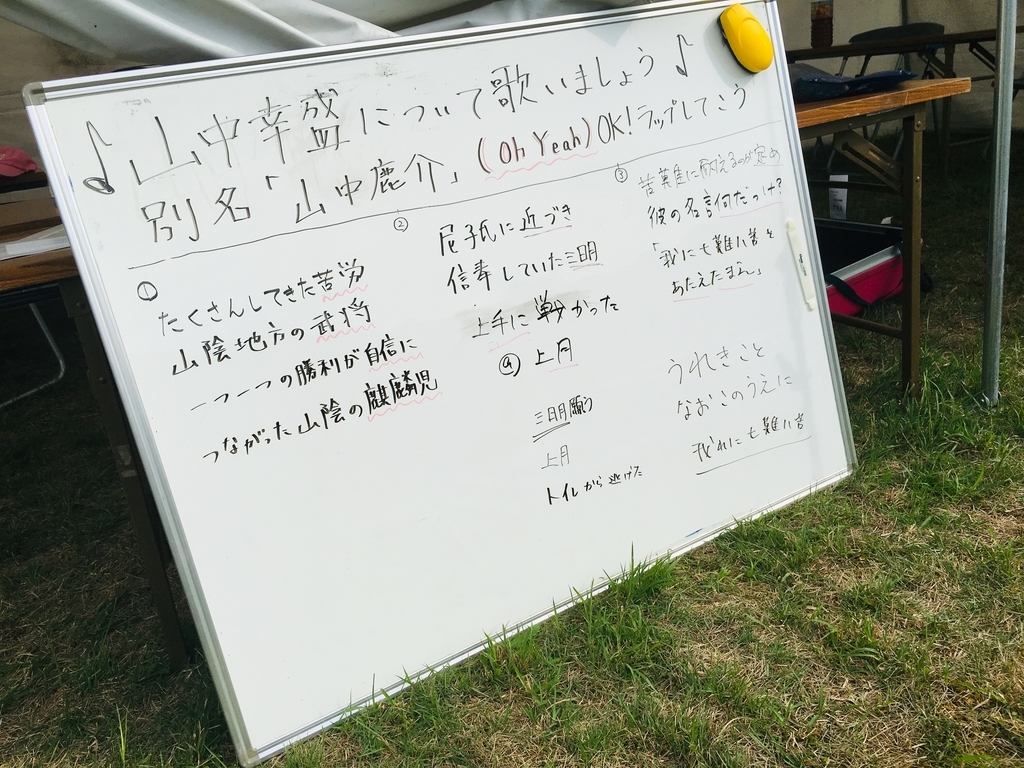 ♪山中幸盛について歌いましょう♪
別名「山中鹿介」(Oh Yeah)OK!ラップしてこう
①
たくさんしてきた苦労
山陰地方の武将
一つ一つの勝利が自信に
つながった山陰の麒麟児
②
尼子氏に近づき
信奉していた三明
上手に戦かった
③
苦難に耐えるのが定め
彼の名言何だっけ?
「我に七難八苦を
あたえたまえ」
④上月
三日月願う
上月
トイレから逃げた
うれきごと
なおこのうえに
我れに七難八苦